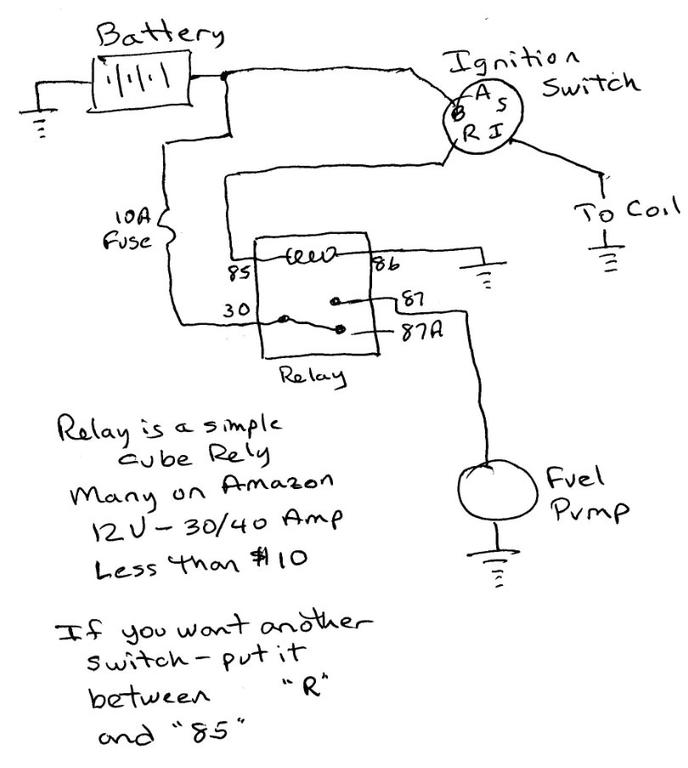 Battery
Ignition
Switch
A
B
S
R I
10A
Fuse
To Coil
85
86
30
87
87A
Relay
Fuel
Pump
Relay is a simple
cube Rely
Many on Amazon
12V - 30/40 Amp
Less than $10
If you want another
switch - put it
between "R"
and "85"